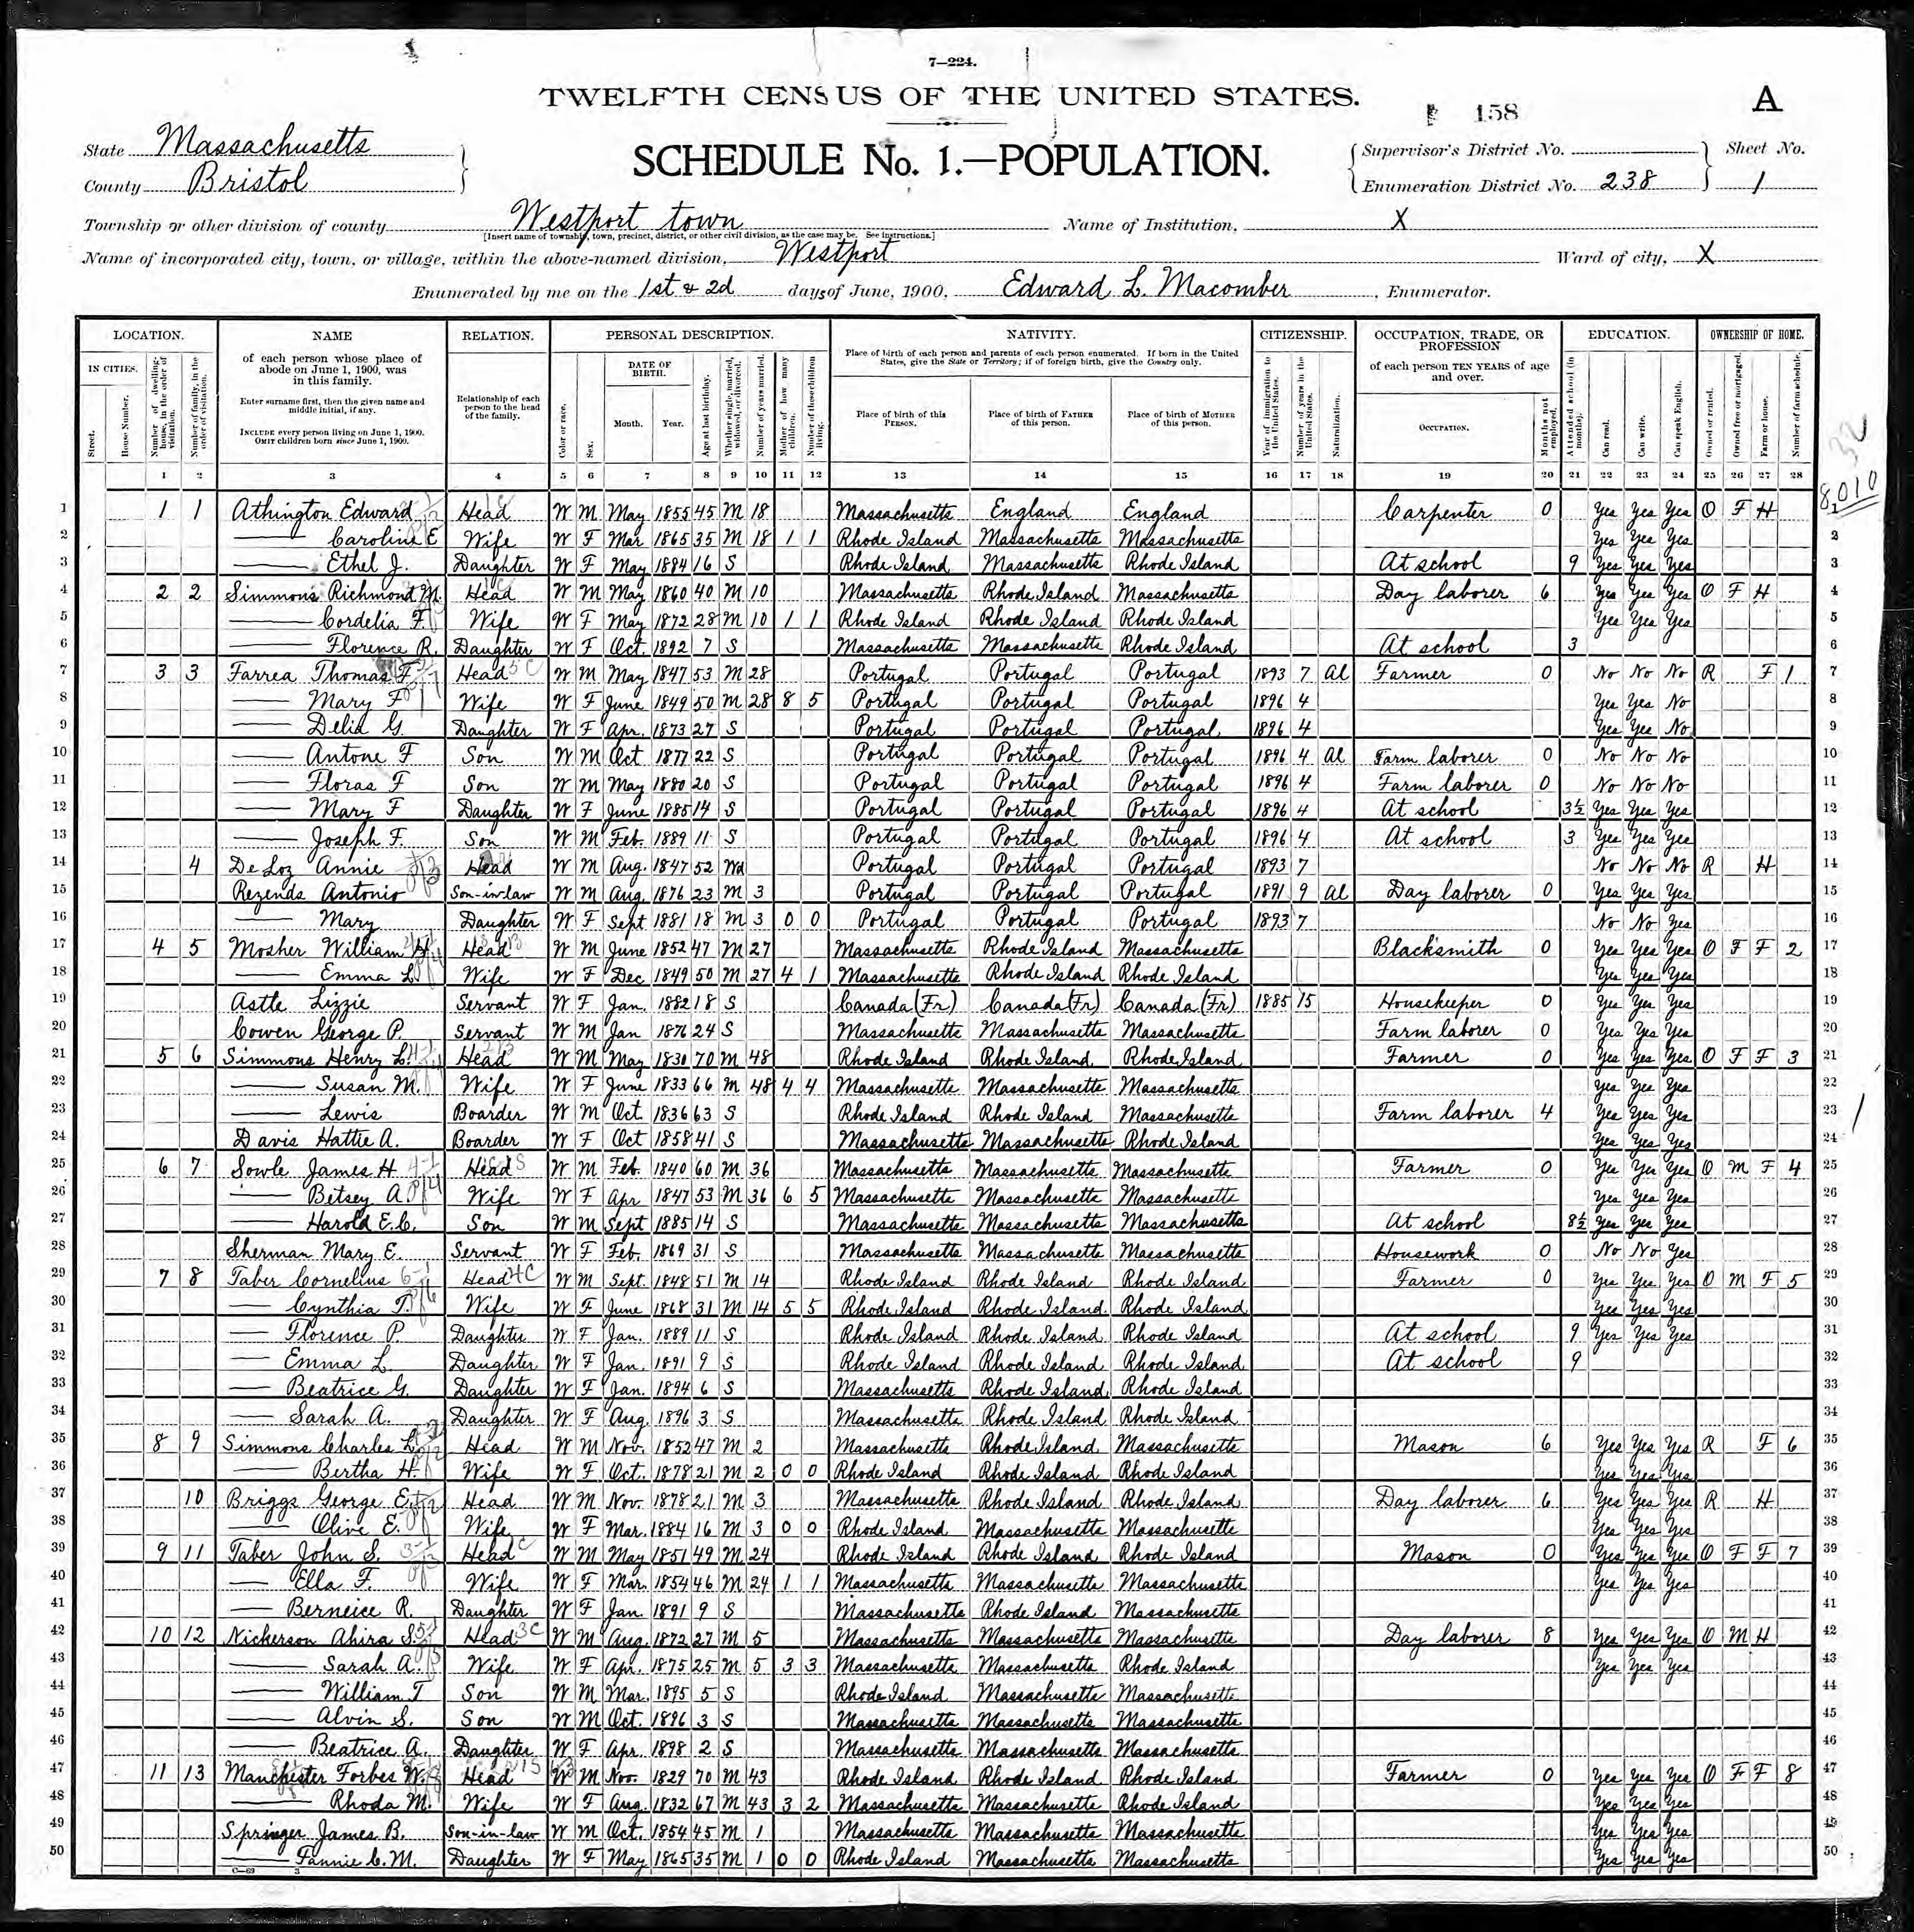 7—224.
TWELFTH CENSUS OF THE UNITED STATES.
158
A
State Massachusetts
SCHEDULE No. 1.—POPULATION.
Supervisor's District No.
Sheet No.
County Bristol
Enumeration District No. 238
1
Township or other division of county Westport town
Name of Institution, X
[Insert name of township, town, precinct, district, or other civil division, as the case may be. See instructions.]
Name of incorporated city, town, or village, within the above-named division, Westport
Ward of city, X
Enumerated by me on the 1st & 2d days of June, 1900, Edward L. Macomber, Enumerator.
LOCATION. NAME RELATION. PERSONAL DESCRIPTION. NATIVITY. CITIZENSHIP. OCCUPATION, TRADE, OR PROFESSION EDUCATION. OWNERSHIP OF HOME.
IN CITIES.
Street.
House Number.
Number of dwelling-house, in the order of visitation.
Number of family, in the order of visitation.
of each person whose place of abode on June 1, 1900, was in this family.
Enter surname first, then the given name and middle initial, if any.
INCLUDE every person living on June 1, 1900.
OMIT children born since June 1, 1900.
Relationship of each person to the head of the family.
Color or race.
Sex.
DATE OF BIRTH.
Month. Year.
Age at last birthday.
Whether single, married, widowed, or divorced.
Number of years married.
Mother of how many children.
Number of these children living.
Place of birth of each person and parents of each person enumerated. If born in the United States, give the State or Territory; if of foreign birth, give the Country only.
Place of birth of this PERSON.
Place of birth of FATHER of this person.
Place of birth of MOTHER of this person.
Year of immigration to the United States.
Number of years in the United States.
Naturalization.
of each person TEN YEARS of age and over.
OCCUPATION.
Months not employed.
Attended school (in months).
Can read.
Can write.
Can speak English.
Owned or rented.
Owned free or mortgaged.
Farm or house.
Number of farm schedule.
1 2 3 4 5 6 7 8 9 10 11 12 13 14 15 16 17 18 19 20 21 22 23 24 25 26 27 28
1 1 1 Athington Edward Head W M May 1855 45 M 18 Massachusetts England England Carpenter 0 Yes Yes Yes O F H 1
2 Caroline E Wife W F Mar 1865 35 M 18 1 1 Rhode Island Massachusetts Massachusetts Yes Yes Yes 2
3 Ethel J. Daughter W F May 1884 16 S Rhode Island Massachusetts Rhode Island At school 9 Yes Yes Yes 3
4 2 2 Simmons Richmond M. Head W M May 1860 40 M 10 Massachusetts Rhode Island Massachusetts Day laborer 6 Yes Yes Yes O F H 4
5 Cordelia F. Wife W F May 1872 28 M 10 1 1 Rhode Island Rhode Island Rhode Island Yes Yes Yes 5
6 Florence R. Daughter W F Oct. 1892 7 S Massachusetts Massachusetts Rhode Island At school 3 6
7 3 3 Farrea Thomas F Head W M May 1847 53 M 28 Portugal Portugal Portugal 1893 7 Al Farmer 0 No No No R F 1 7
8 Mary F Wife W F June 1849 50 M 28 8 5 Portugal Portugal Portugal 1896 4 Yes Yes No 8
9 Delia G. Daughter W F Apr. 1873 27 S Portugal Portugal Portugal 1896 4 Yes Yes No 9
10 Antone F Son W M Oct 1877 22 S Portugal Portugal Portugal 1896 4 Al Farm laborer 0 No No No 10
11 Floras F Son W M May 1880 20 S Portugal Portugal Portugal 1896 4 Farm laborer 0 No No No 11
12 Mary F Daughter W F June 1885 14 S Portugal Portugal Portugal 1896 4 At school 3½ Yes Yes Yes 12
13 Joseph F. Son W M Feb. 1889 11 S Portugal Portugal Portugal 1896 4 At school 3 Yes Yes Yes 13
14 4 De Loz Annie Head W M Aug. 1847 52 Wd Portugal Portugal Portugal 1893 7 No No No R H 14
15 Rezends Antonio Son-in-law W M Aug. 1876 23 M 3 Portugal Portugal Portugal 1891 9 Al Day laborer 0 Yes Yes Yes 15
16 Mary Daughter W F Sept 1881 18 M 3 0 0 Portugal Portugal Portugal 1893 7 No No Yes 16
17 4 5 Mosher William H. Head W M June 1852 47 M 27 Massachusetts Rhode Island Massachusetts Blacksmith 0 Yes Yes Yes O F F 2 17
18 Emma L. Wife W F Dec 1849 50 M 27 4 1 Massachusetts Rhode Island Rhode Island Yes Yes Yes 18
19 Astle Lizzie Servant W F Jan. 1882 18 S Canada (Fr) Canada (Fr) Canada (Fr) 1885 15 Housekeeper 0 Yes Yes Yes 19
20 Cowen George P. Servant W M Jan 1876 24 S Massachusetts Massachusetts Massachusetts Farm laborer 0 Yes Yes Yes 20
21 5 6 Simmons Henry L. Head W M May 1830 70 M 48 Rhode Island Rhode Island Rhode Island Farmer 0 Yes Yes Yes O F F 3 21
22 Susan M. Wife W F June 1833 66 M 48 4 4 Massachusetts Massachusetts Massachusetts Yes Yes Yes 22
23 Lewis Boarder W M Oct. 1836 63 S Rhode Island Rhode Island Massachusetts Farm laborer 4 Yes Yes Yes 23
24 Davis Hattie A. Boarder W F Oct 1858 41 S Massachusetts Massachusetts Rhode Island Yes Yes Yes 24
25 6 7 Sowle James H. Head W M Feb. 1840 60 M 36 Massachusetts Massachusetts Massachusetts Farmer 0 Yes Yes Yes O M F 4 25
26 Betsey A. Wife W F Apr 1847 53 M 36 6 5 Massachusetts Massachusetts Massachusetts Yes Yes Yes 26
27 Harold E. C. Son W M Sept 1885 14 S Massachusetts Massachusetts Massachusetts At school 8½ Yes Yes Yes 27
28 Sherman Mary E. Servant W F Feb. 1869 31 S Massachusetts Massachusetts Massachusetts Housework 0 No No Yes 28
29 7 8 Taber Cornelius Head W M Sept. 1848 51 M 14 Rhode Island Rhode Island Rhode Island Farmer 0 Yes Yes Yes O M F 5 29
30 Cynthia T. Wife W F June 1868 31 M 14 5 5 Rhode Island Rhode Island Rhode Island Yes Yes Yes 30
31 Florence P. Daughter W F Jan. 1889 11 S Rhode Island Rhode Island Rhode Island At school 9 Yes Yes Yes 31
32 Emma L. Daughter W F Jan. 1891 9 S Rhode Island Rhode Island Rhode Island At school 9 32
33 Beatrice G. Daughter W F Jan. 1894 6 S Massachusetts Rhode Island Rhode Island 33
34 Sarah A. Daughter W F Aug. 1896 3 S Massachusetts Rhode Island Rhode Island 34
35 8 9 Simmons Charles L. Head W M Nov. 1852 47 M 2 Massachusetts Rhode Island Massachusetts Mason 6 Yes Yes Yes R F 6 35
36 Bertha H. Wife W F Oct. 1878 21 M 2 0 0 Rhode Island Rhode Island Rhode Island Yes Yes Yes 36
37 10 Briggs George E. Head W M Nov. 1878 21 M 3 Massachusetts Rhode Island Rhode Island Day laborer 6 Yes Yes Yes R H 37
38 Olive E. Wife W F Mar. 1884 16 M 3 0 0 Rhode Island Massachusetts Massachusetts Yes Yes Yes 38
39 9 11 Taber John S. Head W M May 1851 49 M 24 Rhode Island Rhode Island Rhode Island Mason 0 Yes Yes Yes O F F 7 39
40 Ella F. Wife W F Mar. 1854 46 M 24 1 1 Massachusetts Massachusetts Massachusetts Yes Yes Yes 40
41 Berneice R. Daughter W F Jan. 1891 9 S Massachusetts Rhode Island Massachusetts 41
42 10 12 Nickerson Ahira S. Head W M Aug. 1872 27 M 5 Massachusetts Massachusetts Massachusetts Day laborer 8 Yes Yes Yes O M H 42
43 Sarah A. Wife W F Apr. 1875 25 M 5 3 3 Massachusetts Massachusetts Rhode Island Yes Yes Yes 43
44 William T Son W M Mar. 1895 5 S Rhode Island Massachusetts Massachusetts 44
45 Alvin S. Son W M Oct. 1896 3 S Massachusetts Massachusetts Massachusetts 45
46 Beatrice A. Daughter W F Apr. 1898 2 S Massachusetts Massachusetts Massachusetts 46
47 11 13 Manchester Forbes W. Head W M Nov. 1829 70 M 43 Rhode Island Rhode Island Rhode Island Farmer 0 Yes Yes Yes O F F 8 47
48 Rhoda M. Wife W F Aug. 1832 67 M 43 3 2 Massachusetts Massachusetts Rhode Island Yes Yes Yes 48
49 Springer James B. Son-in-law W M Oct. 1854 45 M 1 Massachusetts Massachusetts Massachusetts Yes Yes Yes 49
50 Fannie C. M. Daughter W F May 1865 35 M 1 0 0 Rhode Island Massachusetts Massachusetts Yes Yes Yes 50
C—69 3